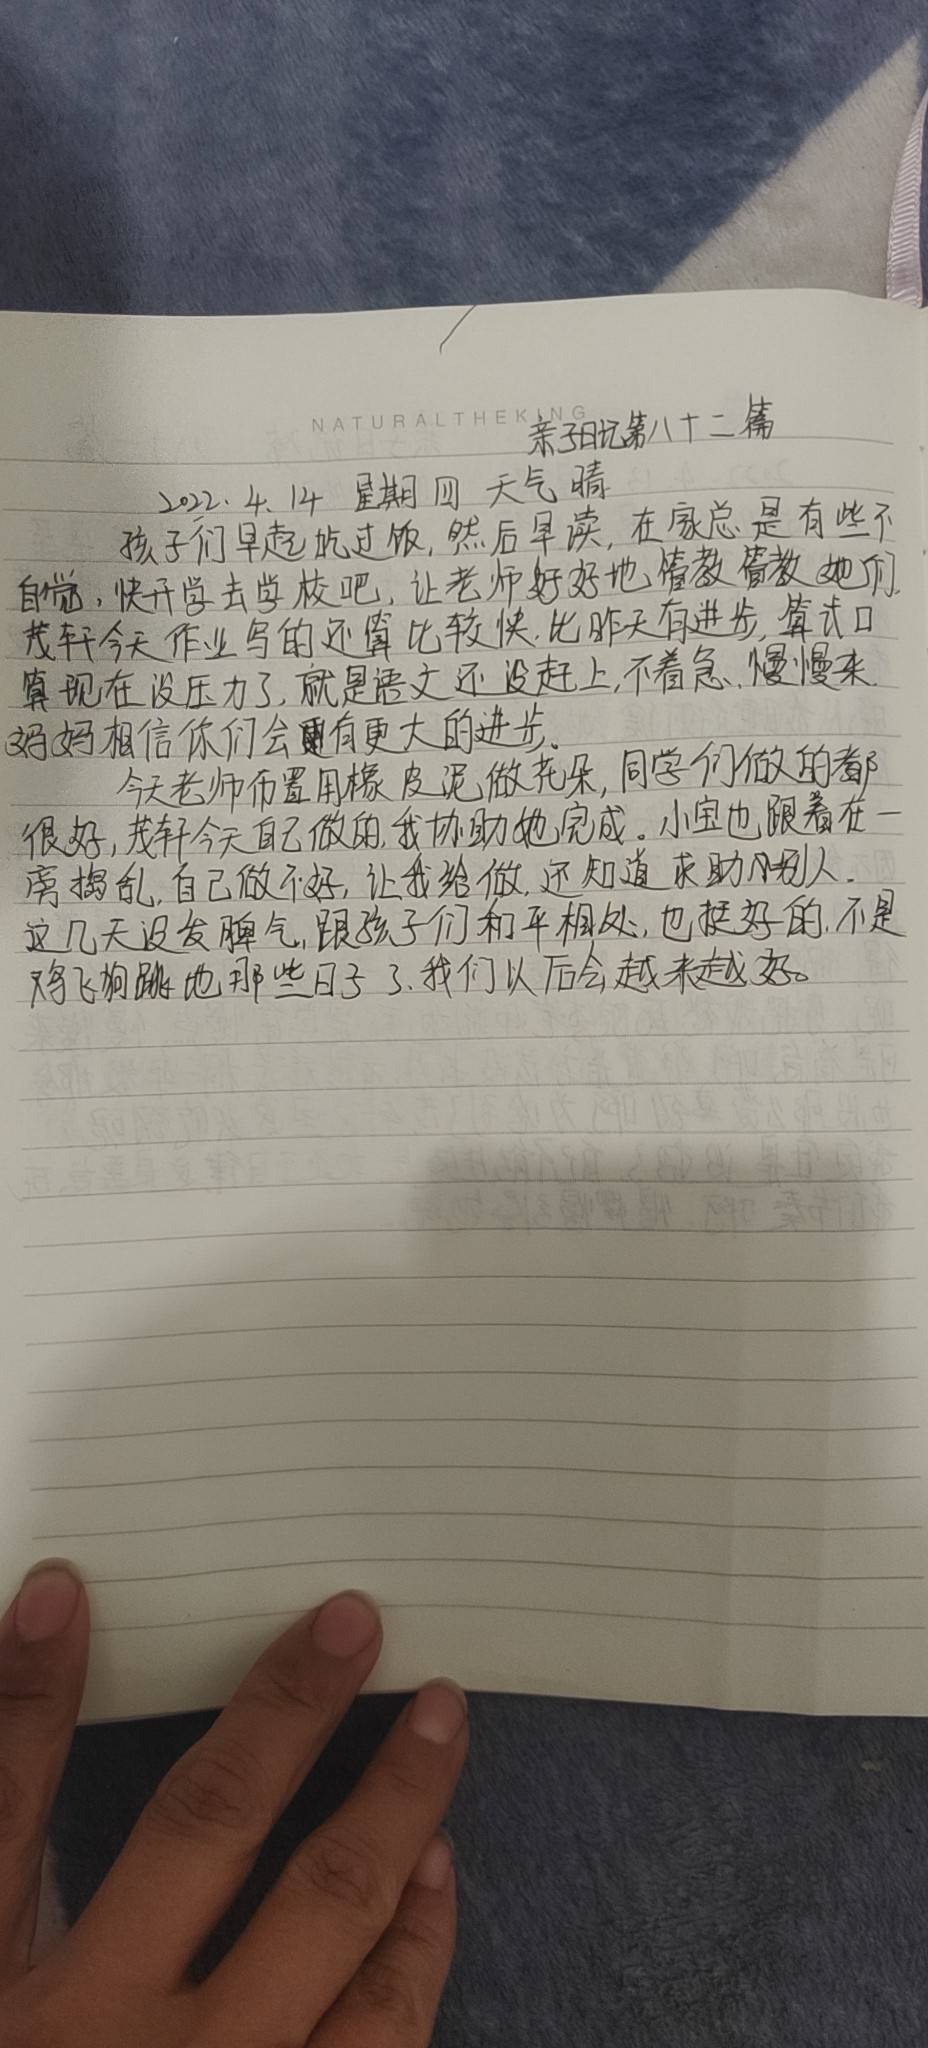 NATURALTHEKING
亲子日记第八十二篇
2022.4.14 星期四 天气晴
孩子们早起吃过饭,然后早读,在家总是有些不
自觉,快开学去学校吧,让老师好好地管教管教她们,
茂轩今天作业写的还算比较快,比昨天有进步,算式口
算现在没压力了,就是语文还没赶上,不着急,慢慢来,
妈妈相信你们会有更大的进步。
今天老师布置用橡皮泥做花朵,同学们做的都
很好,茂轩今天自己做的,我协助她完成。小宝也跟着在一
旁捣乱,自己做不好,让我给做,还知道求助别人.
这几天没发脾气,跟孩子们和平相处,也挺好的,不是
鸡飞狗跳地那些日子了,我们以后会越来越好。